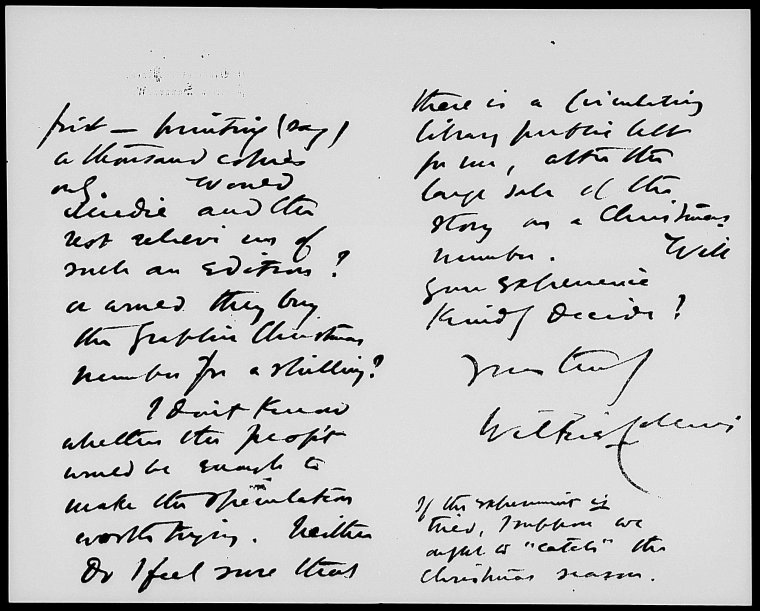 first — printing (say)
a thousand copies
only. Would
Mudie and the
rest relieve us of
such an edition?
or would they buy
the Graphic Christmas
number for a shilling?
I don't know
whether the profit
would be enough to
make the speculation
worth trying. Neither
do I feel sure that
there is a circulating
library public left
for me, after the
large sale of the
story as a Christmas
number. Will
your experience
kindly decide?
Yours truly
Wilkie Collins
If the experiment is
tried, I suppose we
ought to "catch" the
Christmas season.